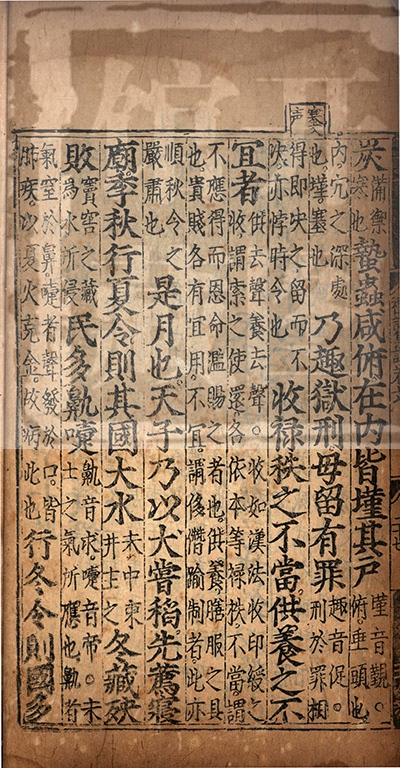 塞入
声
炭備禦寒也蟄蟲咸俯在內皆墐其戶墐音覲。俯垂頭也。
內穴之深處也墐塞也乃趣獄刑毋留有罪趣音促。刑於罪相
得即決之留而不決亦悖時令也收祿秩之不當供養之不
宜者供去聲養去聲。收如漢法收印綬之收謂索之使還各依本等祿秩不當謂
不應得而恩命濫賜之者也。供養膳服之具也。貴賤各有宜用。不宜。謂侈僭踰制者。此亦
順秋令之嚴肅也是月也。天子乃以犬嘗稻。先薦寢
廟。季秋行夏令則其國大水未中東井主之冬藏殃
敗竇窖之藏為水所侵民多鼽嚏鼽音求。嚏音帝。未土之氣所應也。鼽者
氣窒於鼻嚏者聲發於口。皆肺疾。以夏火克金。故病此也行冬令則國多